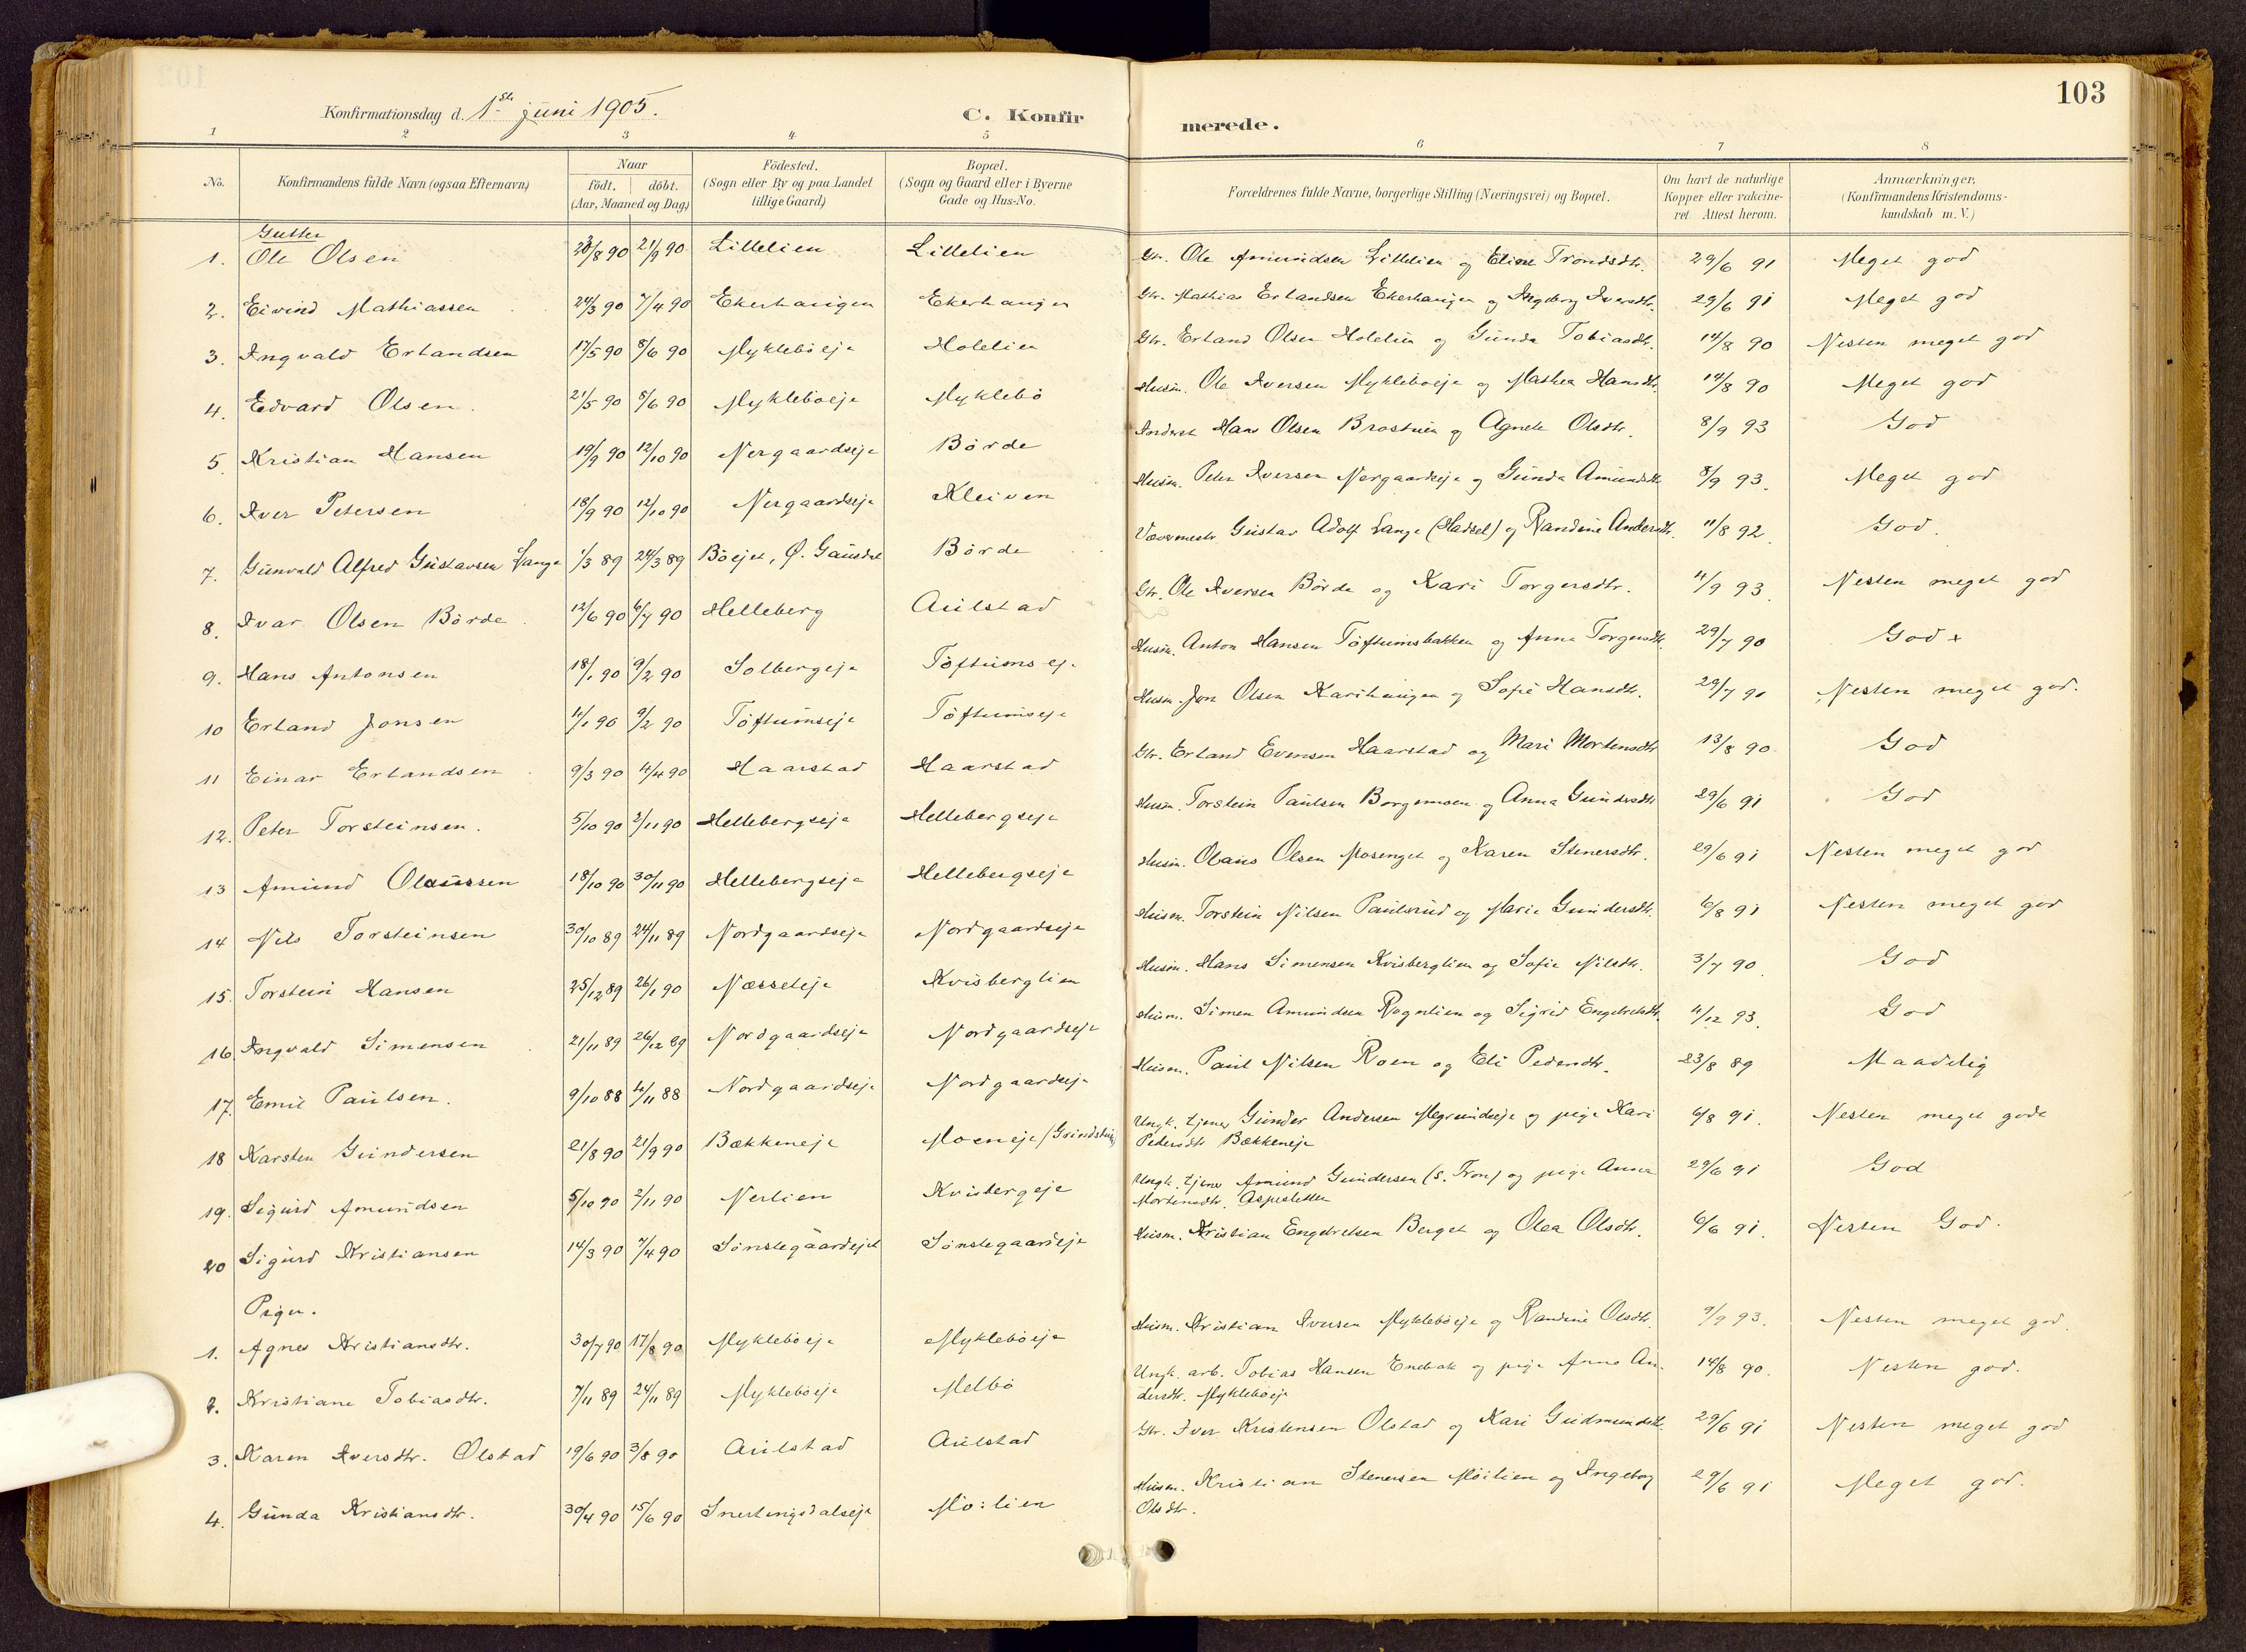 103
Konfirmationsdag d. 1ste juni 1905.
C. Konfir
merede.
1 2 3 4 5 6 7 8
No.
Konfirmandens fulde Navn (ogsaa Efternavn)
Naar
födt. | döbt.
(Aar, Maaned og Dag)
Födested.
(Sogn eller By og paa Landet
tillige Gaard)
Bopæl.
(Sogn og Gaard eller i Byerne
Gade og Hus-No.
Forældrenes fulde Navne, borgerlige Stilling (Næringsvei) og Bopæl.
Om havt de naturlige
Kopper eller vakcine-
ret. Attest herom.
Anmærkninger.
(Konfirmandens Kristendoms-
kundskab m. V.)
Gutter
1. Ole Olsen 8 90 21/9 90 Lillelien Lillelien Gbr. Ole Amundsen Lillelien og Eline Trondsdtr. 29/6 91 Meget god
2. Eivind Mathiassen 24/3 90 7/4 90 Ekerhaugen Ekerhaugen Gbr. Mathias Erlandsen Ekerhaugen og Ingeborg Iversdtr. 29/6 91 Meget god
3. Ingvald Erlandsen 17/5 90 8/6 90 Mykleböeje Holelien Gbr. Erland Olsen Holelien og Gunda Tobiasdtr. 14/8 90 Nesten meget god
4. Edvard Olsen. 21/5 90 8/6 90 Mykleböeje Myklebö Husm. Ole Iversen Mykleböeje og Mathea Hansdtr. 14/8 90 Meget god
5. Kristian Hansen 19/9 90 12/10 90 Nergaardseje Börde Hans Olsen og Agnete Olsdtr. 8/9 93 God
6. Iver Petersen 18/9 90 12/10 90 Nergaardseje Kleiven Husm. Peter Iversen Nergaardseje og Gunda Amundsdtr. 8/9 93. Meget god
7. Gunvald Alfred Gustavsen Lange 1/3 89 24/3 89 Böejet, Ø. Gausdal Börde Vævermestr. Gustav Adolf Lange (Hadsel) og Randine Andersdtr. 11/8 92. God.
8. Ivar Olsen Börde 12/6 90 6/7 90 Helleberg Aulstad Gbr. Ole Iversen Börde og Kari Torgersdtr. 11/9 93. Nesten meget god
9. Hans Antonsen 18/1 90 9/2 90 Solbergeje Töftumseje Husm. Anton Hansen Töftumsbakken og Anne Torgersdtr. 29/7 90 God +
10 Erland Jonsen 11/1 90 9/2 90 Töftumseje Töftumseje Husm. Jon Olsen Karihaugen og Sofie Hansdtr. 29/7 90 Nesten meget god.
11 Einar Erlandsen 9/3 90 4/4 90 Haarstad Haarstad Gbr. Erland Evensen Haarstad og Mari Mortensdtr 13/8 90 God
12. Peter Torsteinsen. 5/10 90 2/11 90 Hellebergseje Hellebergseje Husm. Torstein Paulsen og Anna Gundersdtr 29/6 91 God
13 Amund Olaussen 18/10 90 30/11 90 Hellebergseje Hellebergseje Husm. Olaus Olsen Mosenget og Karen Stenersdtr. 29/6 91 Nesten meget god
14 Nils Torsteinsen 30/10 89 24/11 89 Nordgaardseje Nordgaardseje Husm. Torstein Nilsen Paulsrud og Marie Gundersdtr. 6/8 91 Nesten meget god
15. Torstein Hansen 25/12 89 26/1 90 Næsseteje Kvisberglien Husm. Hans Simensen Kvisberglien og Sofie Nilsdtr. 3/7 90. God
16. Ingvald Simensen 21/11 89 26/12 89 Nordgaardseje Nordgaardseje Husm. Simen Amundsen Rognlien og Sigrid Engebretsdtr. 4/12 93. God
17. Emil Paulsen. 9/10 88 4/11 88 Nordgaardseje Nordgaardseje Husm. Paul Nilsen Roen og Eli Pedersdtr. 23/8 89 Maadelig
18 Karsten Gundersen 21/8 90 21/9 90 Bækkeneje Moeneje Ungk. tjener Gunder Andersen og pige Kari 6/8 91. Nesten meget godt
Pedersdtr Bækkeneje
19. Sigurd Amundsen 5/10 90 2/11 90 Nerlien Kvisbergeje Ungk. tjener Amund Gundersen (S. Fron) og pige Anna 29/6 91 God
Mortensdtr. Aspesletten
20 Sigurd Kristiansen 14/3 90 7/4 90 Sönstegaardejet Sönstegaardeje Husm. Kristian Engebretsen Berget og Olea Olsdtr. 6/6 91. Nesten God.
Piger.
1. Agnes Kristiansdtr. 30/7 90 17/8 90 Mykleböeje Mykleböeje Husm. Kristian Iversen Mykleböeje og Randine Olsdtr. 9/9 93. Nesten meget god.
2. Kristiane Tobiasdtr. 7/11 89 24/11 89 Mykleböeje Melbö Ungk. arb. Tobias Hansen Enebak og pige Anne An- 14/8 90. Nesten god.
dersdtr. Mykleböeje
3. Karen Iversdtr. Olstad 19/6 90 3/8 90 Aulstad Aulstad Gbr. Iver Kristensen Olstad og Kari Gudmundsdtr. 29/6 91 Nesten meget god
4. Gunda Kristiansdtr. 30/4 90 15/6 90 Snertingsdalseje Moilien Husm. Kristian Stenersen Moilien og Ingeborg 29/6 91 Meget god.
Olsdtr.